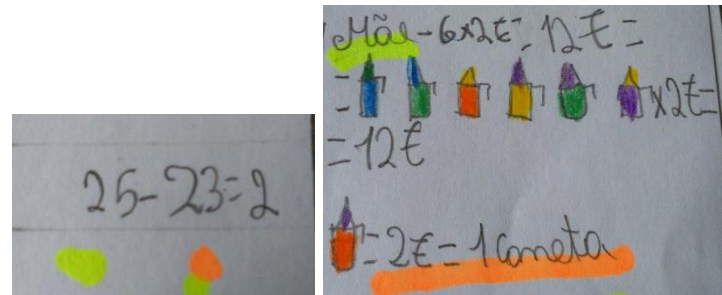 25-23=2
Mãe-6×2€=12€=
=×2€=
=12€
=2€=1 Caneta